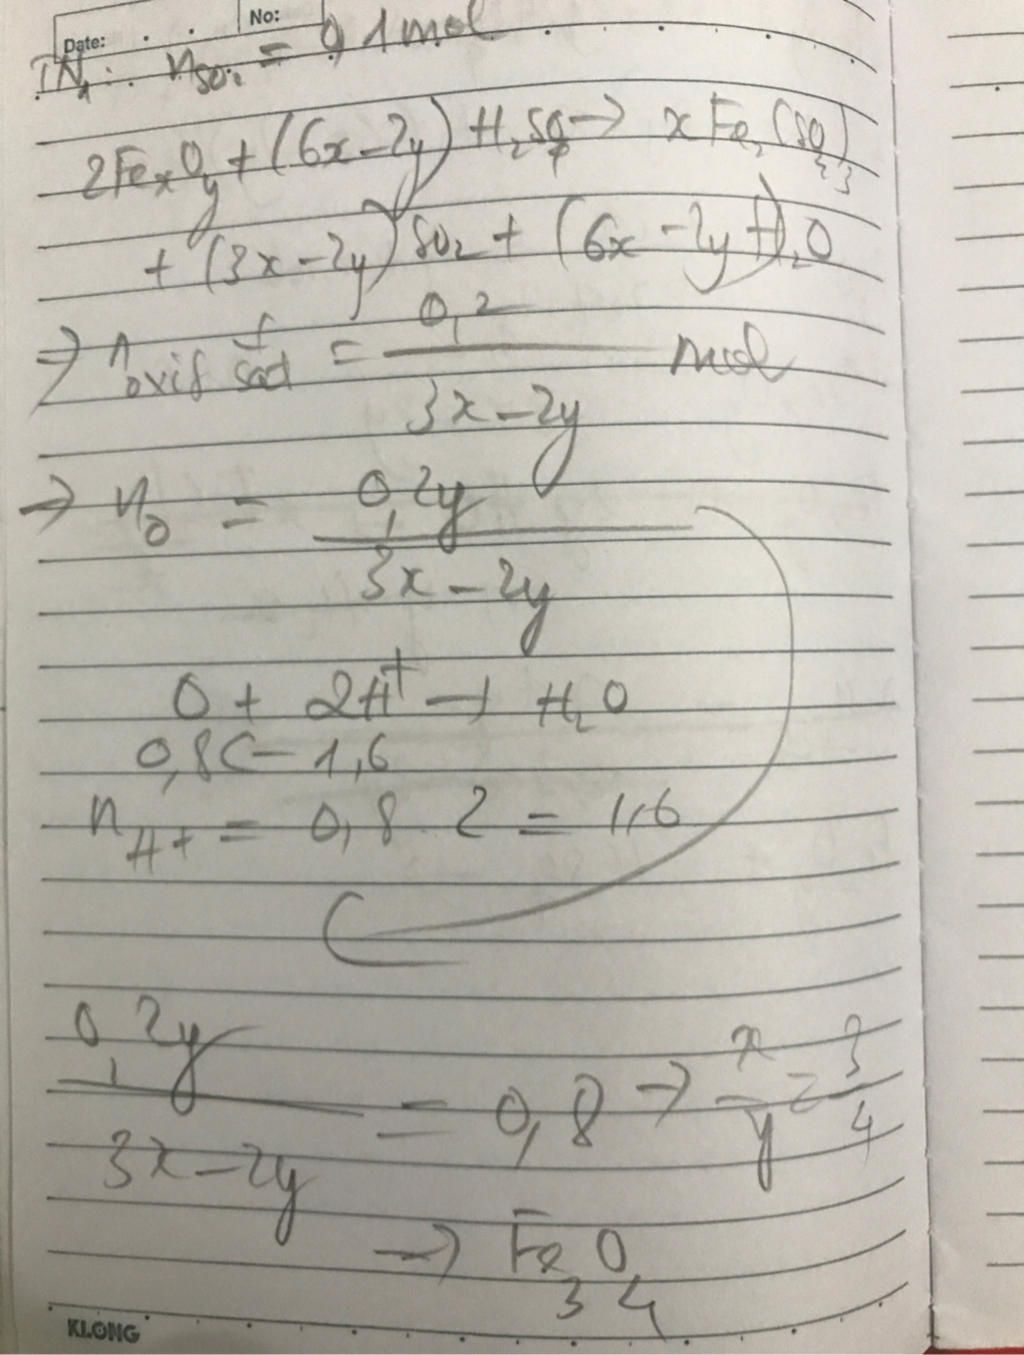 No:
Date:
TN1: nSO2 = 0,1 mol
2FexOy + (6x-2y) H2SO4 → xFe2(SO4)3
+ (3x-2y) SO2 + (6x-2y) H2O
⇒ n oxit sắt = 0,2 / 3x-2y mol
→ nO = 0,2y / 3x-2y
O + 2H+ → H2O
0,8 ← 1,6
nH+ = 0,8 . 2 = 1,6
0,2y / 3x-2y = 0,8 → x/y = 3/4
→ Fe3O4
KLONG